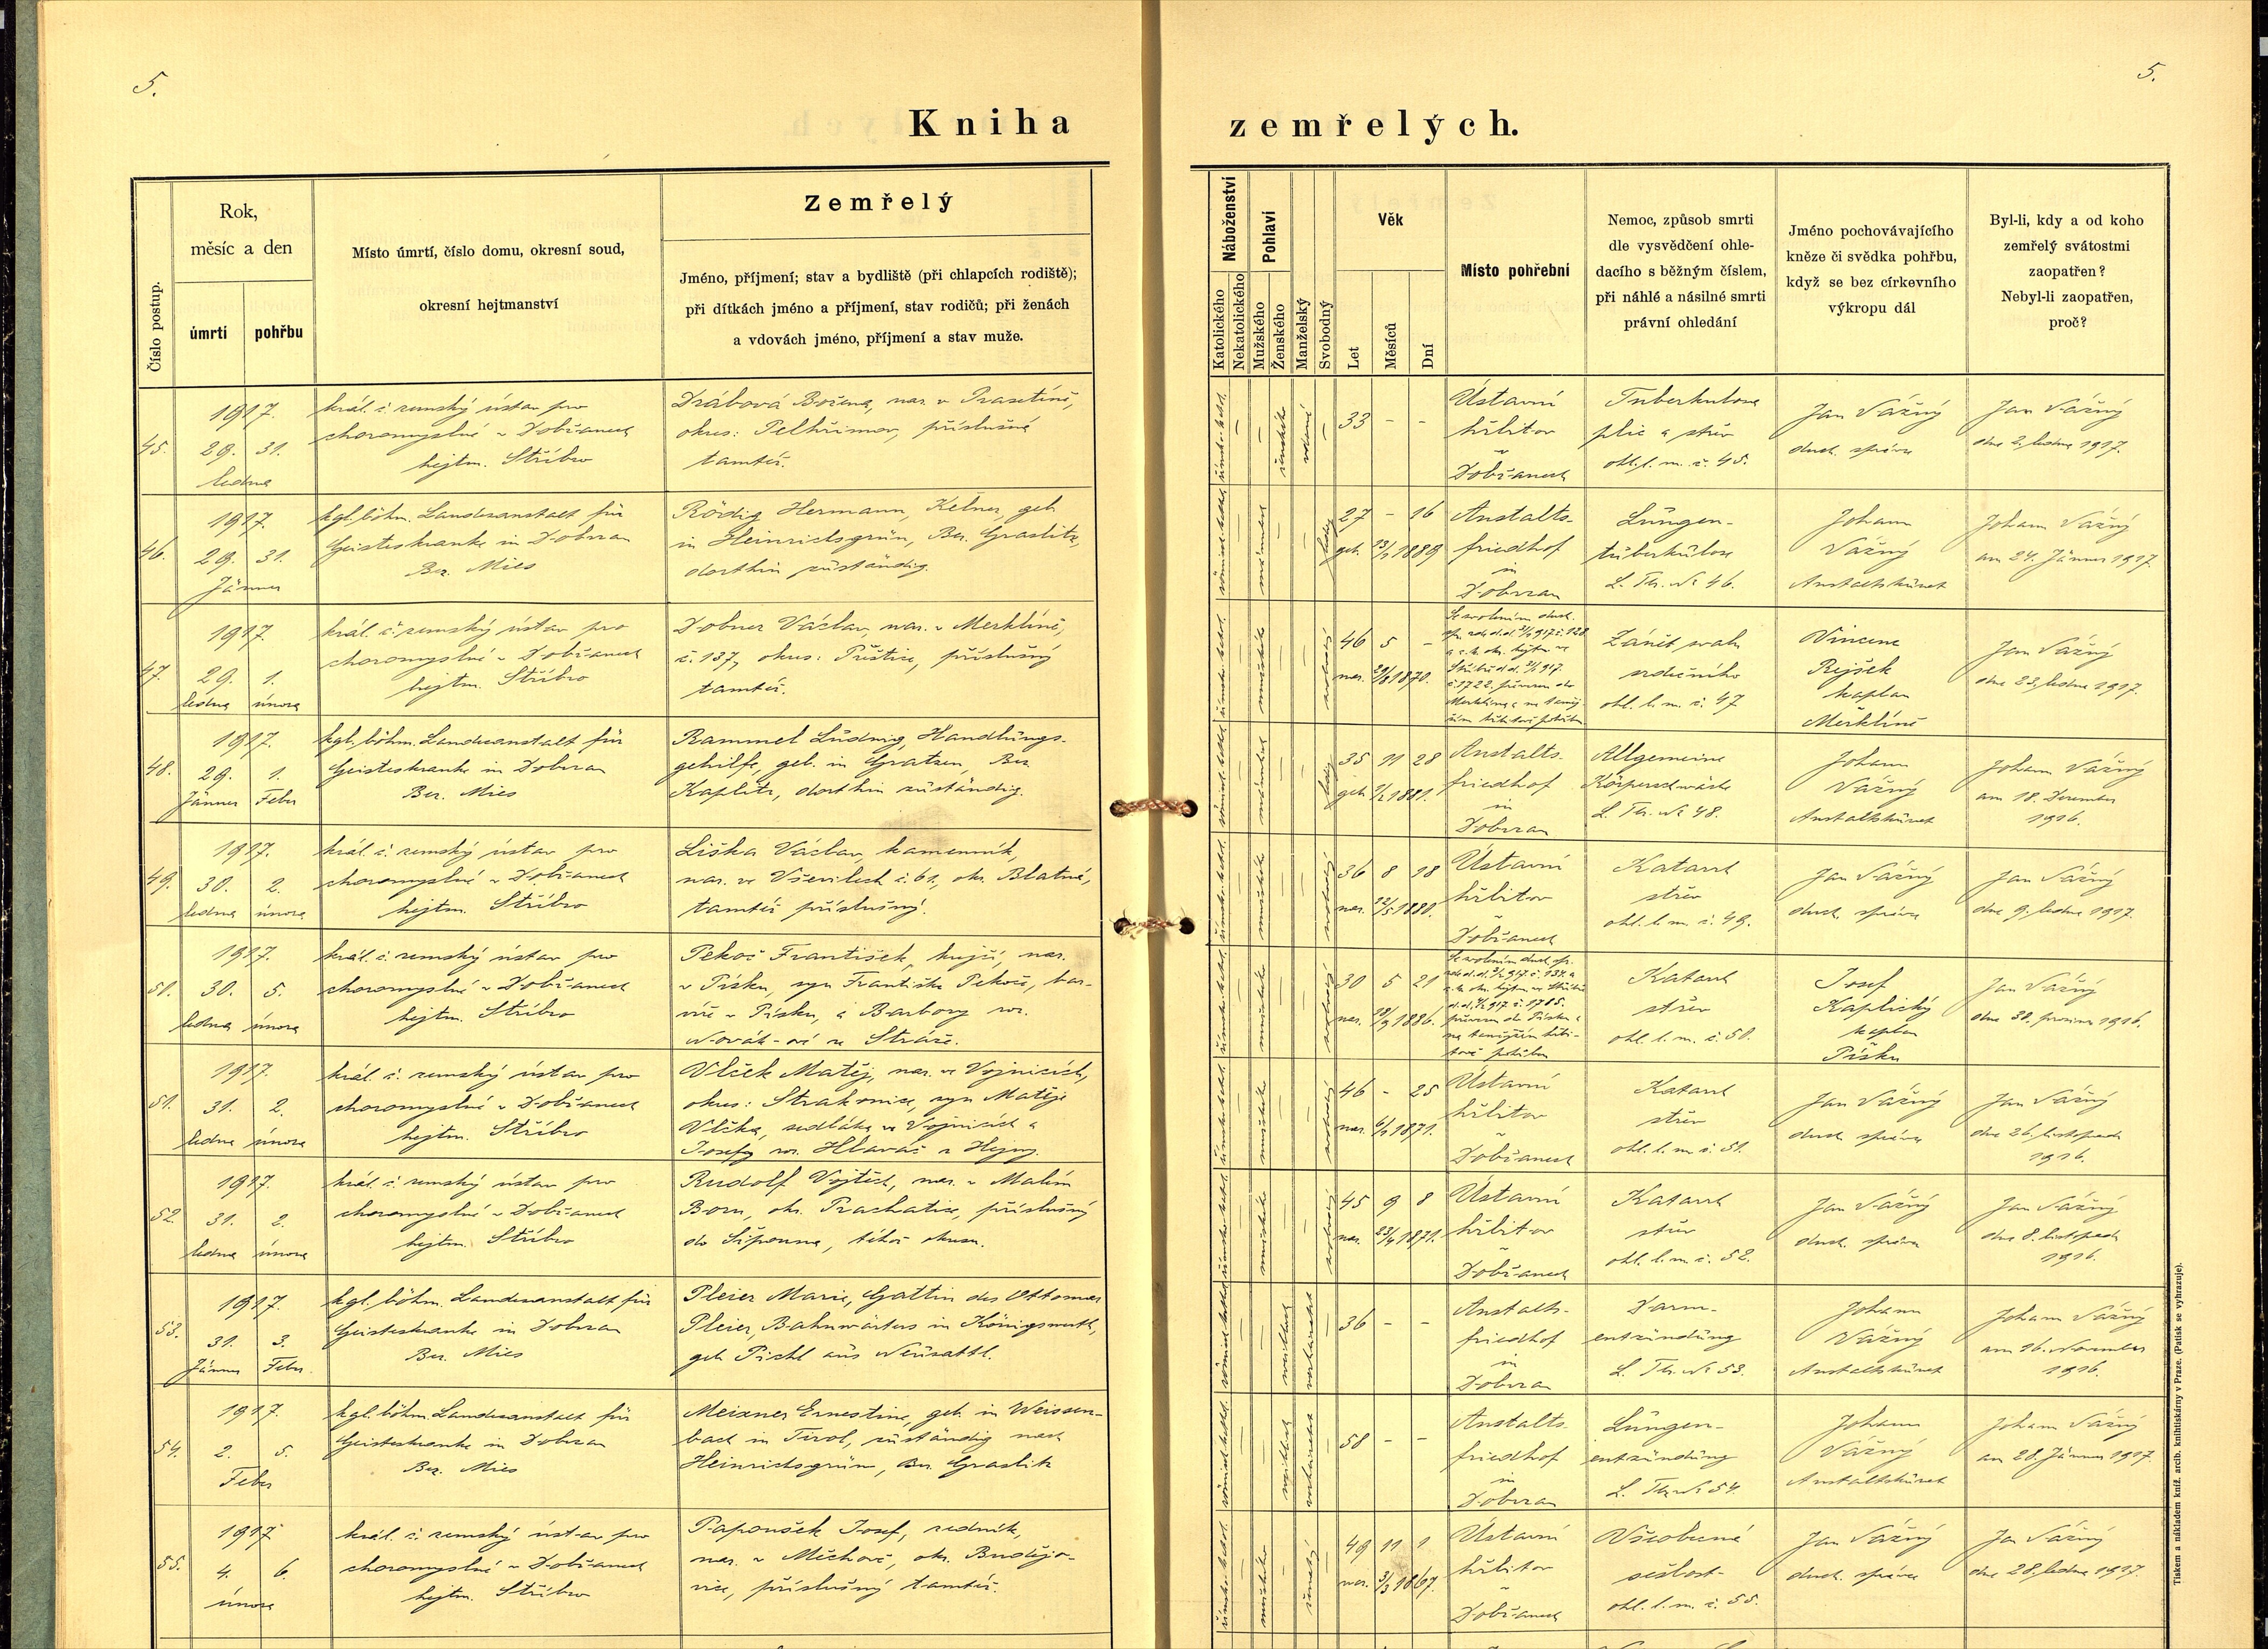 5.
5.
Kniha zemřelých.
Číslo postup.
Rok,
měsíc a den
úmrtí
pohřbu
Místo úmrtí, číslo domu, okresní soud,
okresní hejtmanství
Zemřelý
Jméno, příjmení; stav a bydliště (při chlapcích rodiště);
při dítkách jméno a příjmení, stav rodičů; při ženách
a vdovách jméno, příjmení a stav muže.
Náboženství
Katolického
Nekatolického
Pohlaví
Mužského
Ženského
Manželský
Svobodný
Věk
Let
Měsíců
Dní
Místo pohřební
Nemoc, způsob smrti
dle vysvědčení ohle-
dacího s běžným číslem,
při náhlé a násilné smrti
právní ohledání
Jméno pochovávajícího
kněze či svědka pohřbu,
když se bez církevního
výkropu dál
Byl-li, kdy a od koho
zemřelý svátostmi
zaopatřen?
Nebyl-li zaopatřen,
proč?
45.
1917.
29. 31.
ledna
král. č. zemský ústav pro
choromyslné v Dobřanech
hejtm. Stříbro
Drábová Božena, nar. v Prasetíně,
okres: Pelhřimov, příslušná
tamtéž.
ženského
33 - -
Ústavní
hřbitov
v
Dobřanech
Tuberkulosa
plic a střev
ohl. l. m. č. 45.
Jan Vážný
duch. správce
Jan Vážný
dne 2. ledna 1917.
46.
1917.
29. 31.
Jänner
kgl. böhm. Landesanstalt für
Geisteskranke in Dobrzan
Bez. Mies
Rödig Hermann, Kelner, geb.
in Heinrichsgrün, Bez. Graslitz,
dorthin zuständig.
männlich
ledig
27 - 16
geb. 13/1 1889
Anstalts-
friedhof
in
Dobrzan
Lungen-
tuberkulose
L. Th. No 46.
Johann
Vážný
Anstaltskurat
Johann Vážný
am 24. Jänner 1917.
47.
1917.
29. 1.
ledna února
král. č. zemský ústav pro
choromyslné v Dobřanech
hejtm. Stříbro
Dobner Václav, nar. v Merklíně,
č. 137, okres: Přeštice, příslušný
tamtéž.
mužského
svobodný
46 5 -
nar. 29/8 1870.
Zánět svalu
srdečního
ohl. l. m. č. 47
Vincenc
Rejšek
kaplan
Merklíně
Jan Vážný
dne 23. ledna 1917.
48.
1917.
29. 1.
Jänner Feber
kgl. böhm. Landesanstalt für
Geisteskranke in Dobrzan
Bez. Mies
Rammel Ludwig, Handlungs-
gehilfe, geb. in Gratzen, Bez.
Kaplitz, dorthin zuständig.
männlich
ledig
35 11 28
geb. 1/2 1881.
Anstalts-
friedhof
in
Dobrzan
Allgemeine
Körperschwäche
L. Th. No 48.
Johann
Vážný
Anstaltskurat
Johann Vážný
am 18. Dezember
1916.
49.
1917.
30. 2.
ledna února
král. č. zemský ústav pro
choromyslné v Dobřanech
hejtm. Stříbro
Liška Václav, kamenník,
nar. ve Vševilech č. 61., okr. Blatná,
tamtéž příslušný.
mužského
svobodný
36 8 18
nar. 12/5 1880.
Ústavní
hřbitov
v
Dobřanech
Katarrh
střev
ohl. l. m. č. 49.
Jan Vážný
duch. správce
Jan Vážný
dne 9. ledna 1917.
50.
1917.
30. 5.
ledna února
král. č. zemský ústav pro
choromyslné v Dobřanech
hejtm. Stříbro
Pekoč František, krejčí, nar.
v Písku, syn Františka Pekoče, bar-
víře v Písku, a Barbory roz.
Novák-ové ze Stráže.
mužského
svobodný
30 5 21
nar. 10/8 1886.
Katarrh
střev
ohl. l. m. č. 50.
Josef
Káplický
kaplan
Písku
Jan Vážný
dne 30. prosince 1916.
51.
1917.
31. 2.
ledna února
král. č. zemský ústav pro
choromyslné v Dobřanech
hejtm. Stříbro
Vlček Matěj, nar. ve Vojnicích,
okres: Strakonice, syn Matěje
Vlčka, sedláka ve Vojnicích a
Josefy roz. Hlaváč z Hejny.
mužského
svobodný
46 - 25
nar. 6/1 1871.
Ústavní
hřbitov
v
Dobřanech
Katarrh
střev
ohl. l. m. č. 51.
Jan Vážný
duch. správce
Jan Vážný
dne 26. listopadu
1916.
52.
1917.
31. 2.
ledna února
král. č. zemský ústav pro
choromyslné v Dobřanech
hejtm. Stříbro
Rudolf Vojtěch, nar. v Malém
Boru, okr. Prachatice, příslušný
do Šipouna, téhož okresu.
mužského
svobodný
45 9 8
nar. 23/4 1871.
Ústavní
hřbitov
v
Dobřanech
Katarrh
střev
ohl. l. m. č. 52.
Jan Vážný
duch. správce
Jan Vážný
dne 8. listopadu
1916.
53.
1917.
31. 3.
Jänner Feber
kgl. böhm. Landesanstalt für
Geisteskranke in Dobrzan
Bez. Mies
Pleier Marie, Gattin des Ottomar
Pleier, Bahnwärters in Königswerth,
geb. Pichl aus Neusattl.
weiblich
verheiratet
36 - -
Anstalts-
friedhof
in
Dobrzan
Darm-
entzündung
L. Th. No 53.
Johann
Vážný
Anstaltskurat
Johann Vážný
am 16. November
1916.
54.
1917.
2. 5.
Feber
kgl. böhm. Landesanstalt für
Geisteskranke in Dobrzan
Bez. Mies
Meixner Ernestine, geb. in Weissen-
bach in Tirol, zuständig nach
Heinrichsgrün, Bez. Graslitz
weiblich
verheiratet
58 - -
Anstalts-
friedhof
in
Dobrzan
Lungen-
entzündung
L. Th. No 54.
Johann
Vážný
Anstaltskurat
Johann Vážný
am 28. Jänner 1917.
55.
1917
4. 6.
února
král. č. zemský ústav pro
choromyslné v Dobřanech
hejtm. Stříbro
Papoušek Josef, zedník,
nar. v Měchově, okr. Budějo-
vice, příslušný tamtéž.
mužského
ženatý
49 11 1
nar. 3/3 1867.
Ústavní
hřbitov
v
Dobřanech
Všeobecná
sešlost
ohl. l. m. č. 55.
Jan Vážný
duch. správce
Jan Vážný
dne 28. ledna 1917.
Tiskem a nákladem kníž. arcib. knihtiskárny v Praze. (Patisk se vyhrazuje).